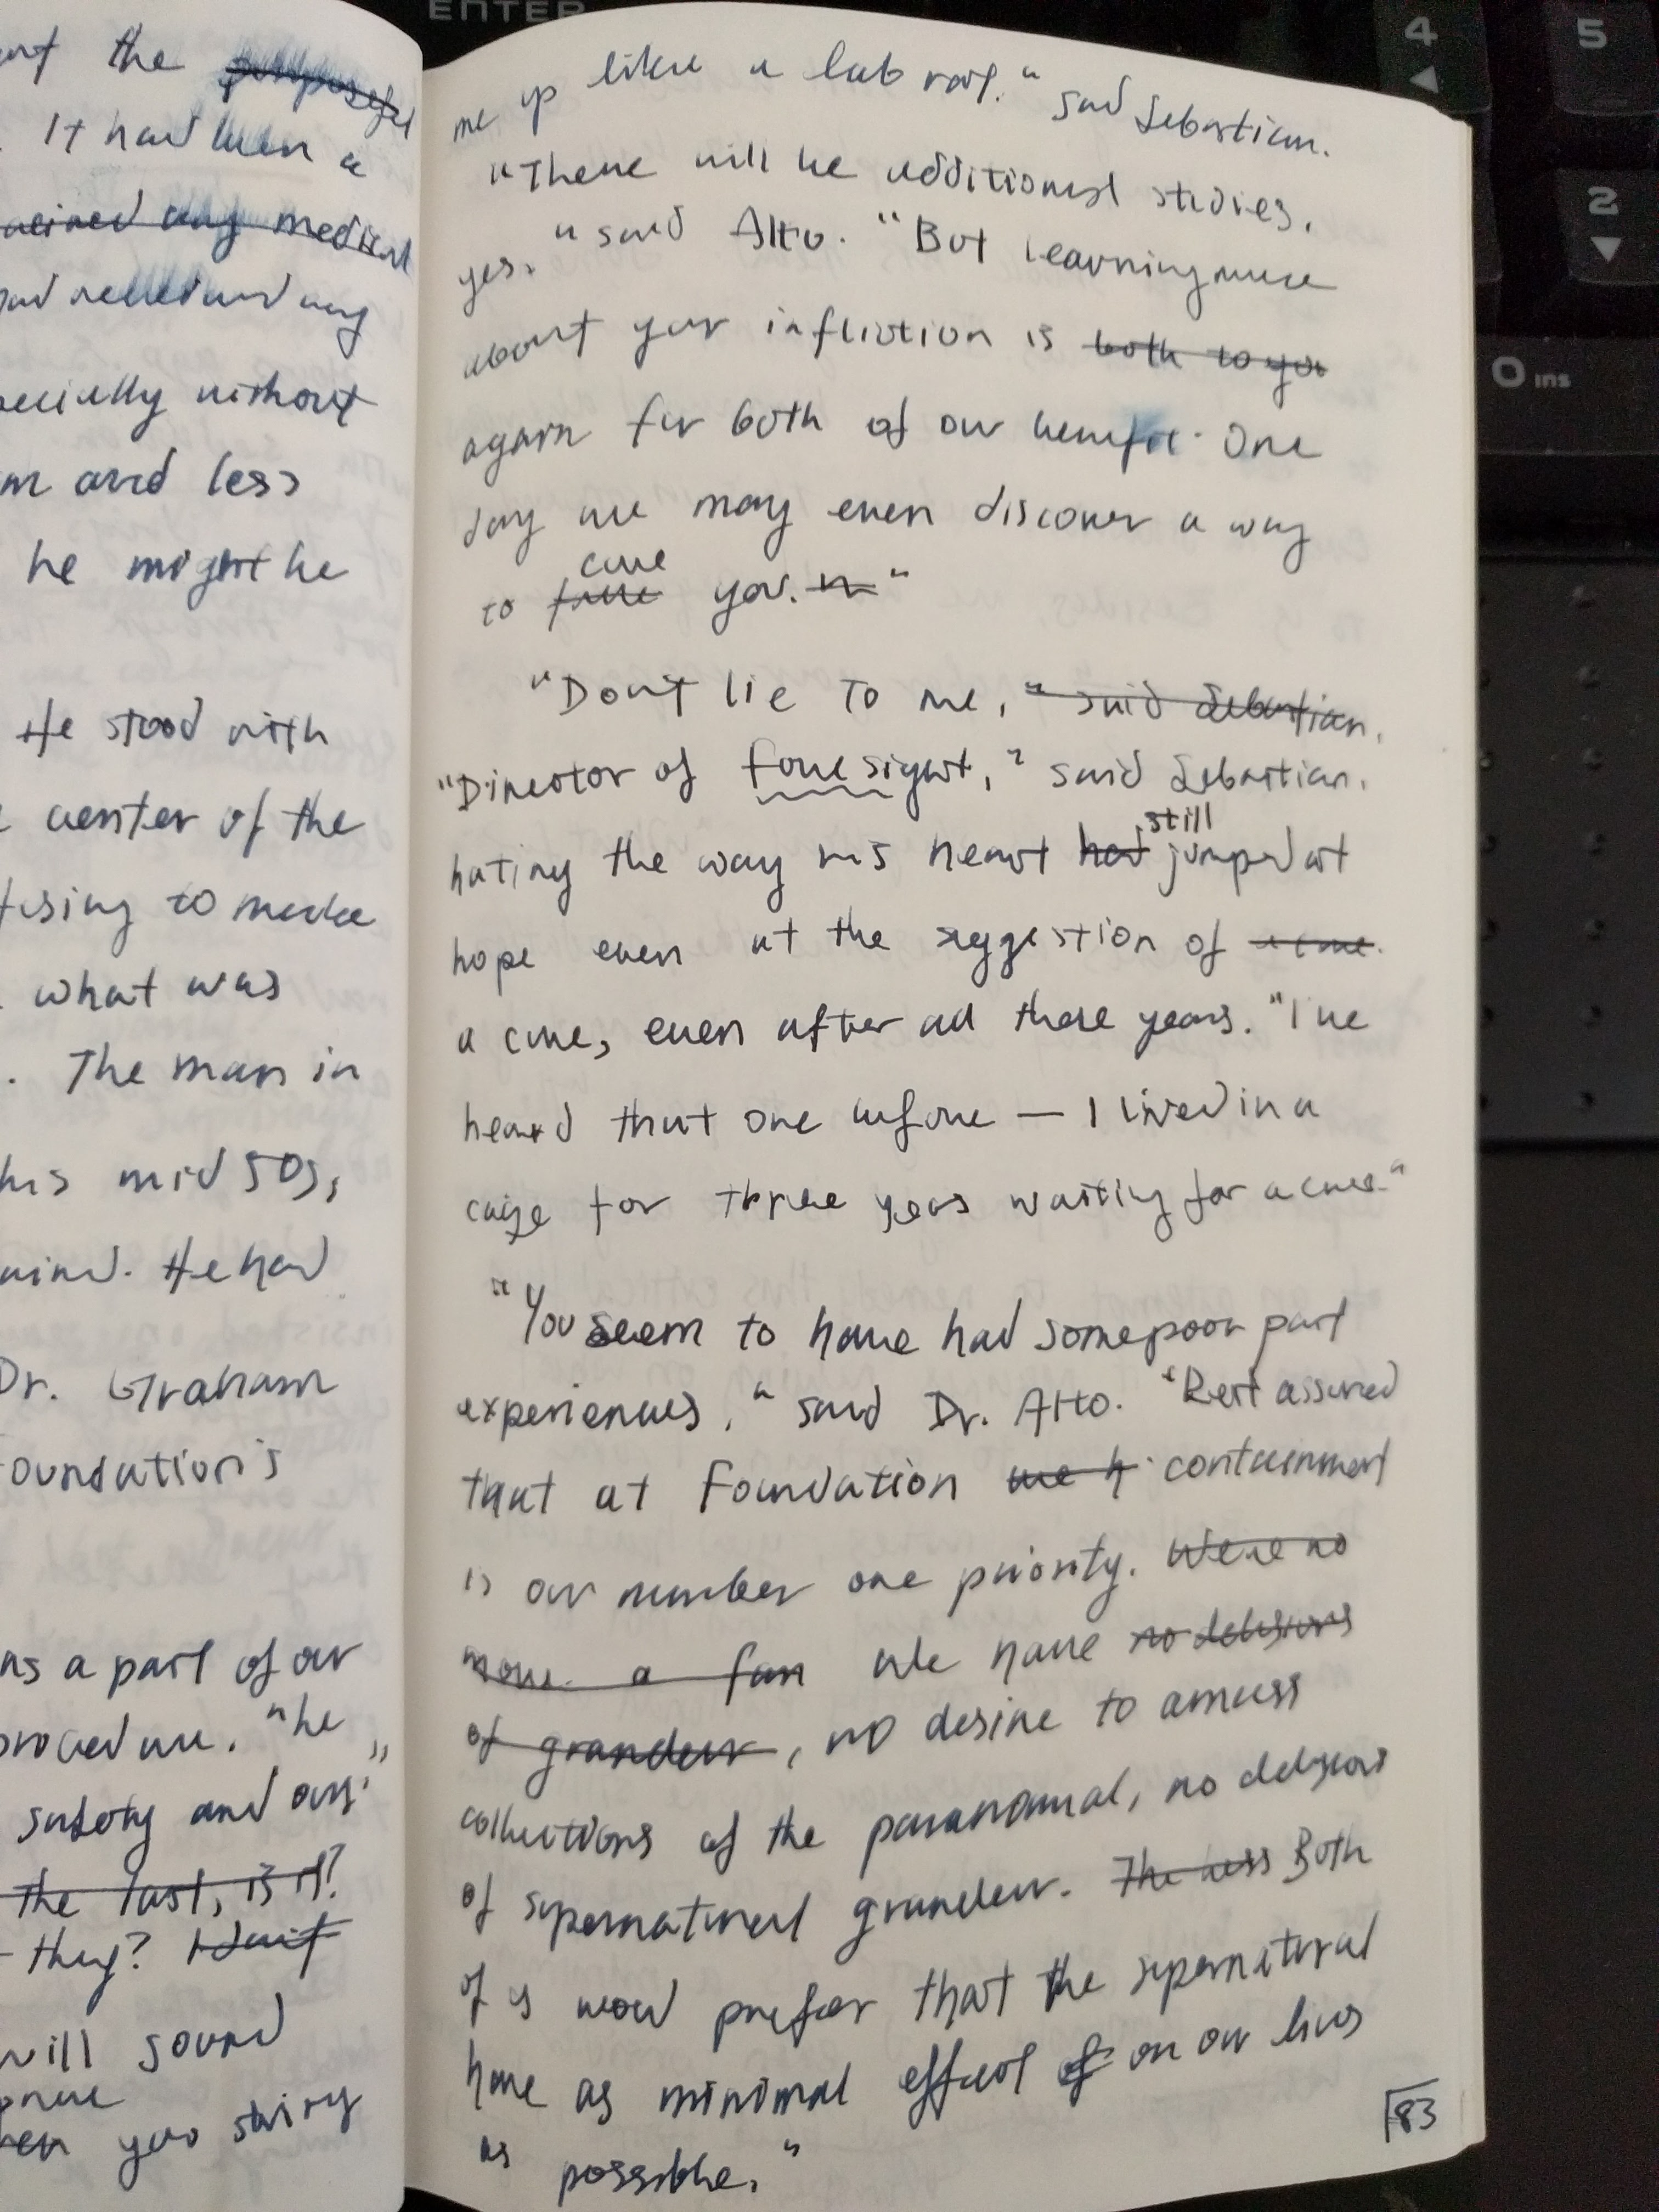 ENTER
4
5
2
0 ins
the purposeful
. It had been a
any medical
any
without
and less
he might be
He stood with
center of the
to make
what was
. The man in
his mid 50s,
. He had
Dr. Graham
Foundation's
as a part of our
procedure. "he
safety and our"
the last, is it?
they? I don't
will sound
your string
me up like a lab rat." said Sebastian.
"There will be additional studies,
yes," said Alto. "But learning more
about your infliction is both to you
again for both of our benefit. One
day we may even discover a way
cure
to you. "
"Don't lie to me," said Sebastian.
"Director of Foresight," said Sebastian.
still
hating the way his heart had jumped at
hope even at the suggestion of a cure.
a cure, even after all these years. "I've
heard that one before — I lived in a
cage for three years waiting for a cure."
"You seem to have had some poor past
experiences," said Dr. Alto. "Rest assured
that at Foundation we h containment
is our number one priority. We're no
more a fan We have no delusions
of grandeur, no desire to amass
collections of the paranormal, no delusions
of supernatural grandeur. The less Both
of us would prefer that the supernatural
have as minimal effect of on our lives
as possible."
83